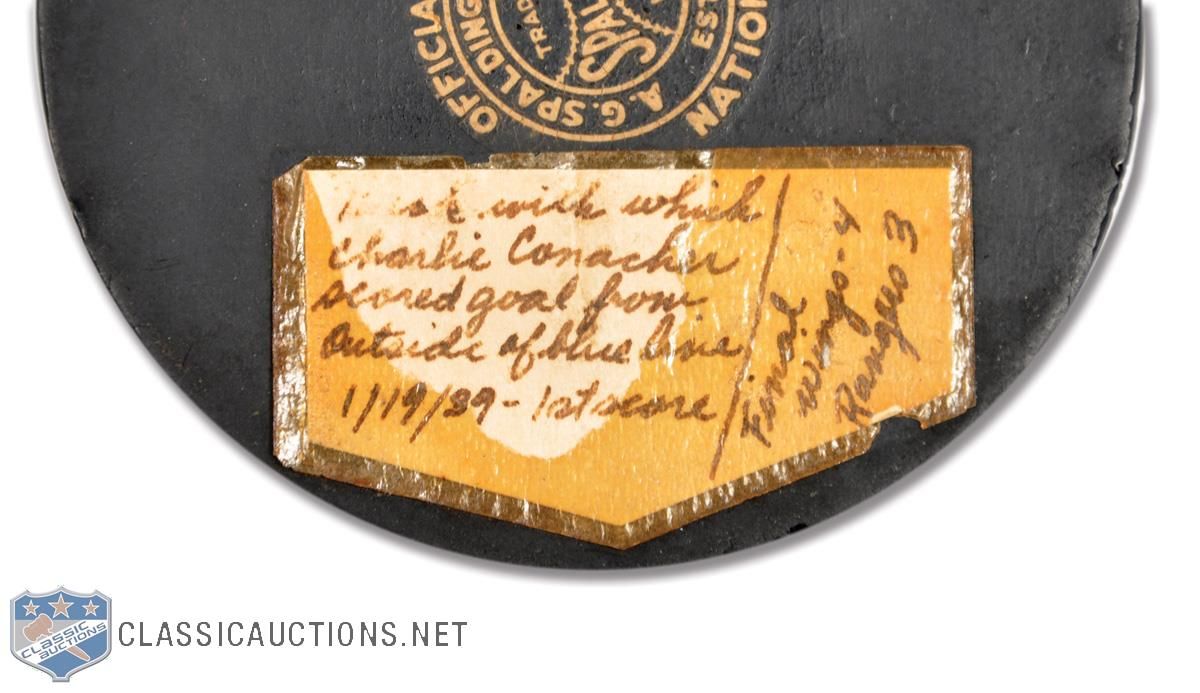 OFFICIA
NATION
SPALDING
A.G.SPALDING
TRAD
SPAL
EST
with which
Charlie Conacher
scored goal from
outside of blue line
1/19/39 - 1st score
Final
Wings - 4
Rangers 3
CLASSIC
AUCTIONS
CLASSICAUCTIONS.NET